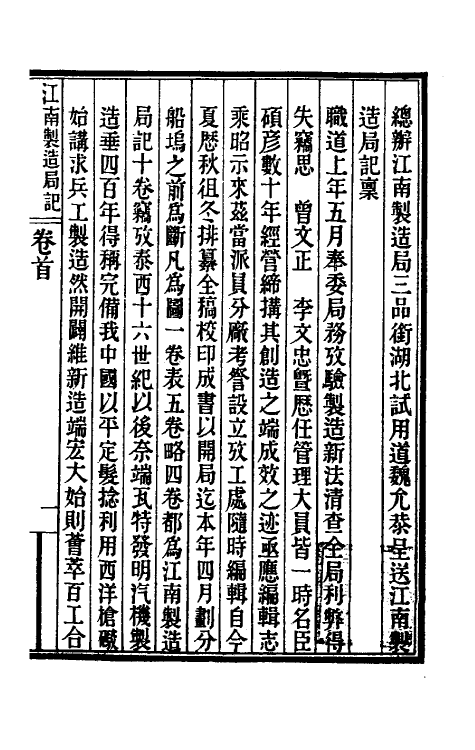 總辦江南製造局三品銜湖北試用道魏允恭呈送江南製
造局記稟
職道上年五月奉委局務攷驗製造新法清查全局利弊得
失竊思　曾文正　李文忠暨歷任管理大員皆一時名臣
碩彥數十年經營締搆其創造之端成效之迹亟應編輯志
乘昭示來茲當派員分廠考詧設立攷工處隨時編輯自今
夏歷秋徂冬排纂全稿校印成書以開局迄本年四月劃分
船塢之前爲斷凡爲圖一卷表五卷略四卷都爲江南製造
局記十卷竊攷泰西十六世紀以後奈端瓦特發明汽機製
造垂四百年得稱完備我中國以平定髮捻利用西洋槍礮
始講求兵工製造然開闢維新造端宏大始則薈萃百工合
江南製造局記
卷首
一